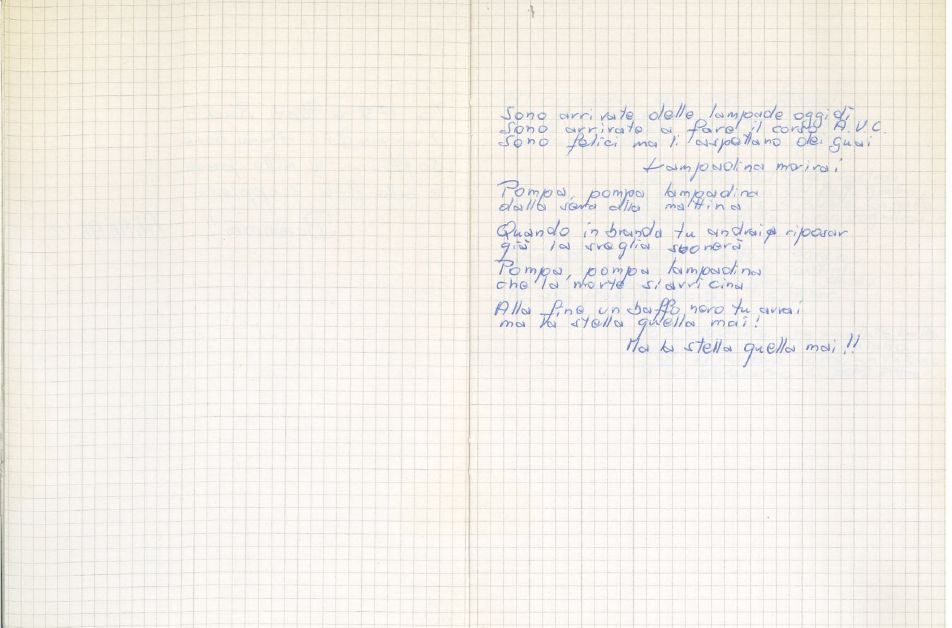 Sono arrivate delle lampade oggidì
Sono arrivate a fare il corso A.U.C.
Sono felici ma li aspettano dei guai
Lampadina morirai
Pompa, pompa lampadina
dalla sera alla mattina
Quando in branda tu andrai a riposar
già la sveglia suonerà
Pompa, pompa lampadina
che la morte si avvicina
Alla fine un baffo nero tu avrai
ma la stella quella mai!
Ma la stella quella mai!!